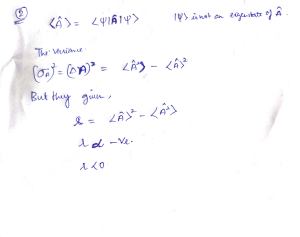 ②
⟨Â⟩ = ⟨ψ|Â|ψ⟩ |ψ⟩ is not an eigenstate of Â
The variance
(σA)² = (ΔA)² = ⟨Â²⟩ - ⟨Â⟩²
But they given,
r = ⟨Â⟩² - ⟨Â²⟩
r α -ve.
r < 0